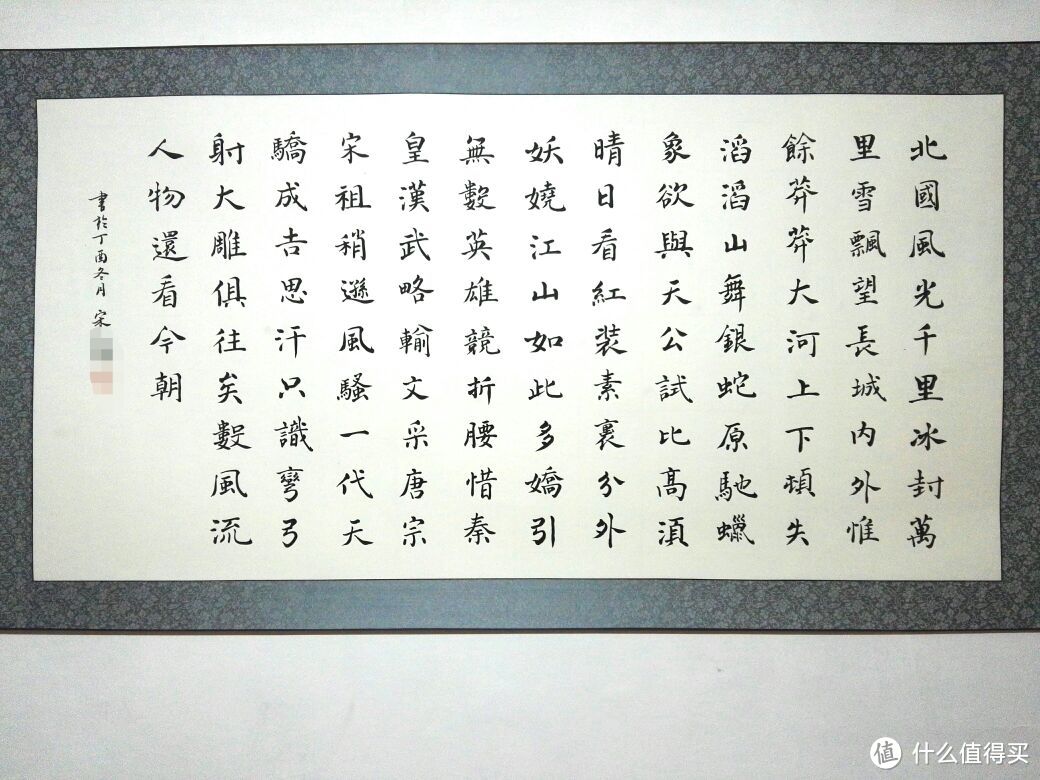 北國風光千里冰封萬
里雪飄望長城內外惟
餘莽莽大河上下頓失
滔滔山舞銀蛇原馳蠟
象欲與天公試比高須
晴日看紅裝素裹分外
妖嬈江山如此多嬌引
無數英雄競折腰惜秦
皇漢武略輸文采唐宗
宋祖稍遜風騷一代天
驕成吉思汗只識彎弓
射大雕俱往矣數風流
人物還看今朝
書於丁酉冬月 宋
值 什么值得买